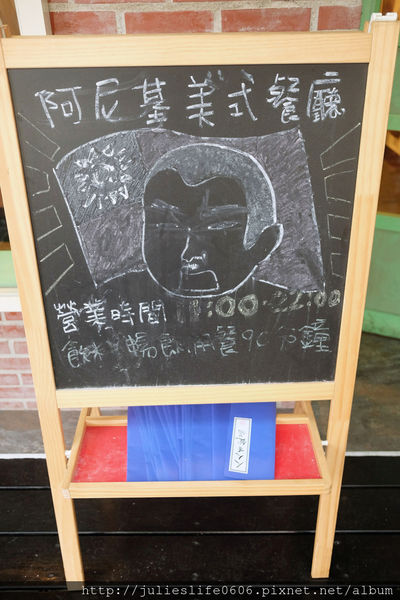 阿尼基美式餐廳
營業時間 11:00-21:00
飲料暢飲.用餐90分鐘
http://julieslife0606.pixnet.net/album